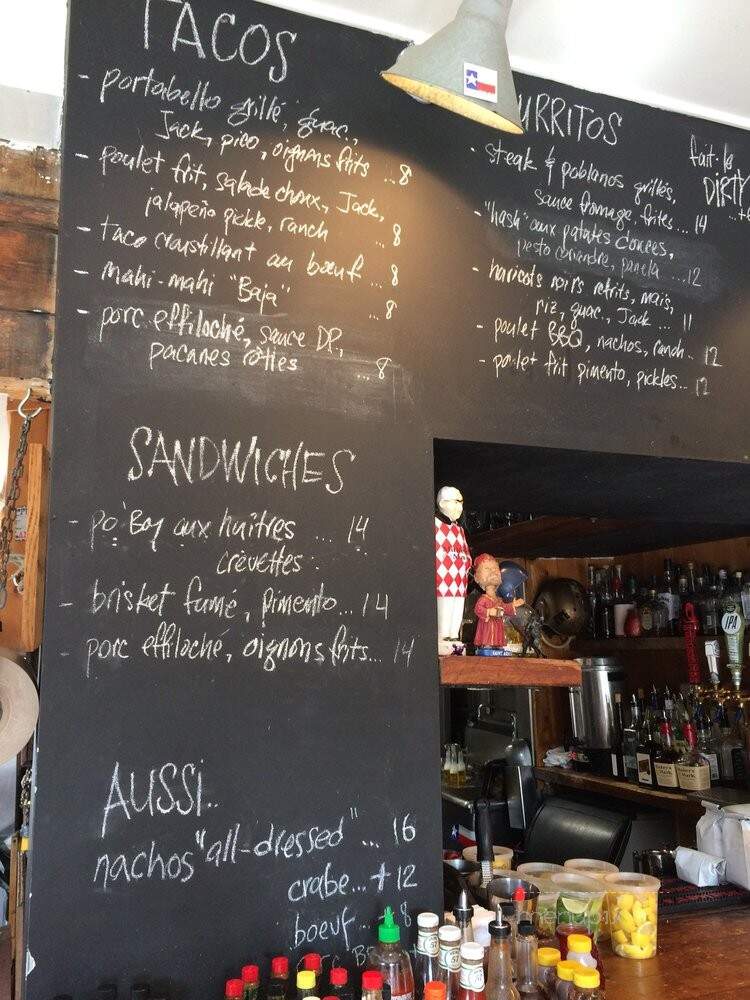 TACOS
- portabello grillé, guac.,
Jack, pico, oignons frits ...8
- poulet frit, salade choux, Jack,
jalapeño pickle, ranch ...8
- taco croustillant au boeuf ...8
- mahi-mahi "Baja" ...8
- porc effiloché, sauce DP,
pacanes rôties ...8
SANDWICHES
- po'Boy aux huîtres ... 14
crevettes
- brisket fumé, pimento... 14
- porc effiloché, oignons frits... 14
AUSSI...
nachos "all-dressed"... 16
crabe...+12
boeuf ..+8
URRITOS
- steak & poblanos grillés,
sauce fromage, frites... 14
- "hash" aux patates douces,
pesto coriandre, panela ...12
- haricots noirs refrits, maïs,
riz, guac., Jack ... 11
- poulet BBQ, nachos, ranch.. 12
- poulet frit pimento, pickles... 12
fait-le
DIRTY
IPA
menupix